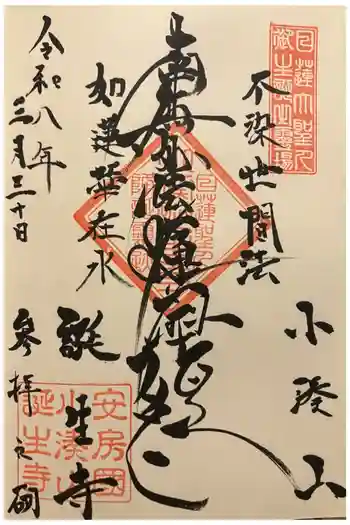 日蓮大聖人
御生誕之霊場
小湊山
不染世間法
南無妙法蓮華経
如蓮華在水
誕生寺
令和八年
三月三十日
参拝之砌
安房国
小湊山
誕生寺